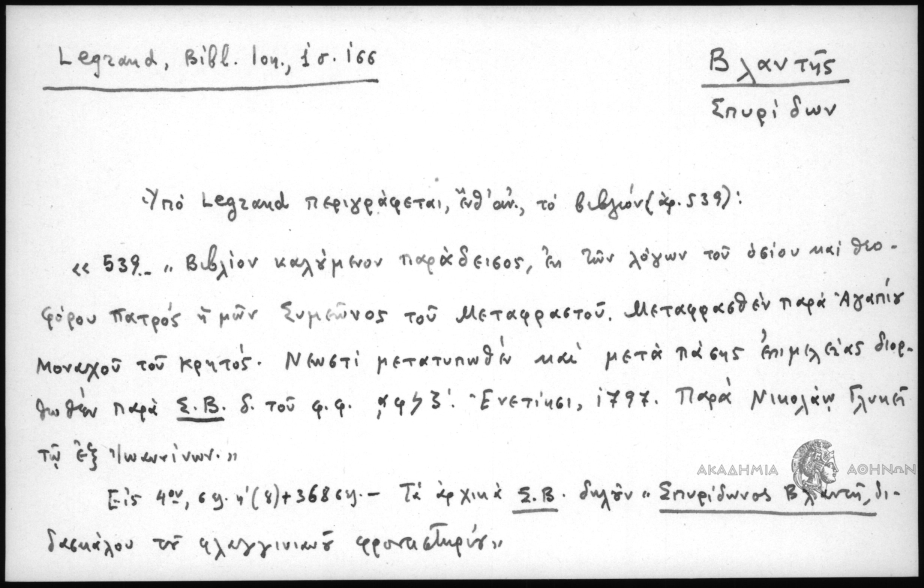 Legrand, Bibl. Ion., 1 σ. 166
Βλαντῆς
Σπυρίδων
Ὑπό Legrand περιγράφεται, ἔνθ' ἀν., τό βιβλίον (ἀρ. 539):
« 539_ „ Βιβλίον καλούμενον παράδεισος, ἐκ τῶν λόγων τοῦ ὁσίου καί θεο-
φόρου πατρός ἡμῶν Συμεῶνος τοῦ Μεταφραστοῦ. Μεταφρασθέν παρά Ἀγαπίου
Μοναχοῦ τοῦ Κρητός. Νεωστί μετατυπωθέν καί μετά πάσης ἐπιμελείας διορ-
θωθέν παρά Σ.Β. δ. τοῦ φ.φ. Ἐνετίησι, 1797. Παρά Νικολάῳ Γλυκεῖ
τῷ ἐξ Ἰωαννίνων.»
Εἰς 4ον, σσ. η' (8)+368 σσ.— Τά ἀρχικά Σ.Β. δηλοῦν „ Σπυρίδωνος Βλαντῆ, δι-
δασκάλου τοῦ φλαγγινιανοῦ φροντιστηρίου»
ΑΚΑΔΗΜΙΑ ΑΘΗΝΩΝ